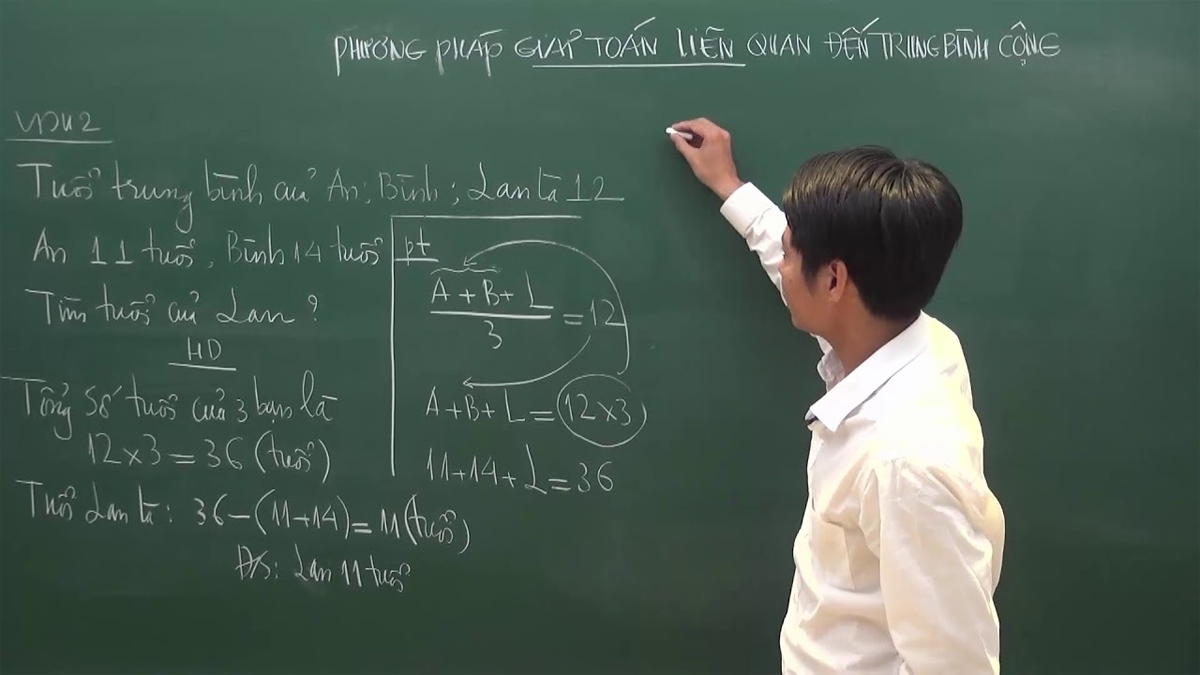 PHƯƠNG PHÁP GIẢI TOÁN LIÊN QUAN ĐẾN TRUNG BÌNH CỘNG
VDụ 2
Tuổi trung bình của An; Bình; Lan là 12
An 11 tuổi, Bình 14 tuổi
Tìm tuổi của Lan?
HD
Tổng số tuổi của 3 bạn là
12x3 = 36 (tuổi)
Tuổi Lan là: 36-(11+14) = 11 (tuổi)
ĐS: Lan 11 tuổi
pt
A+B+L
3
=12
A+B+L = 12x3
11+14+L=36